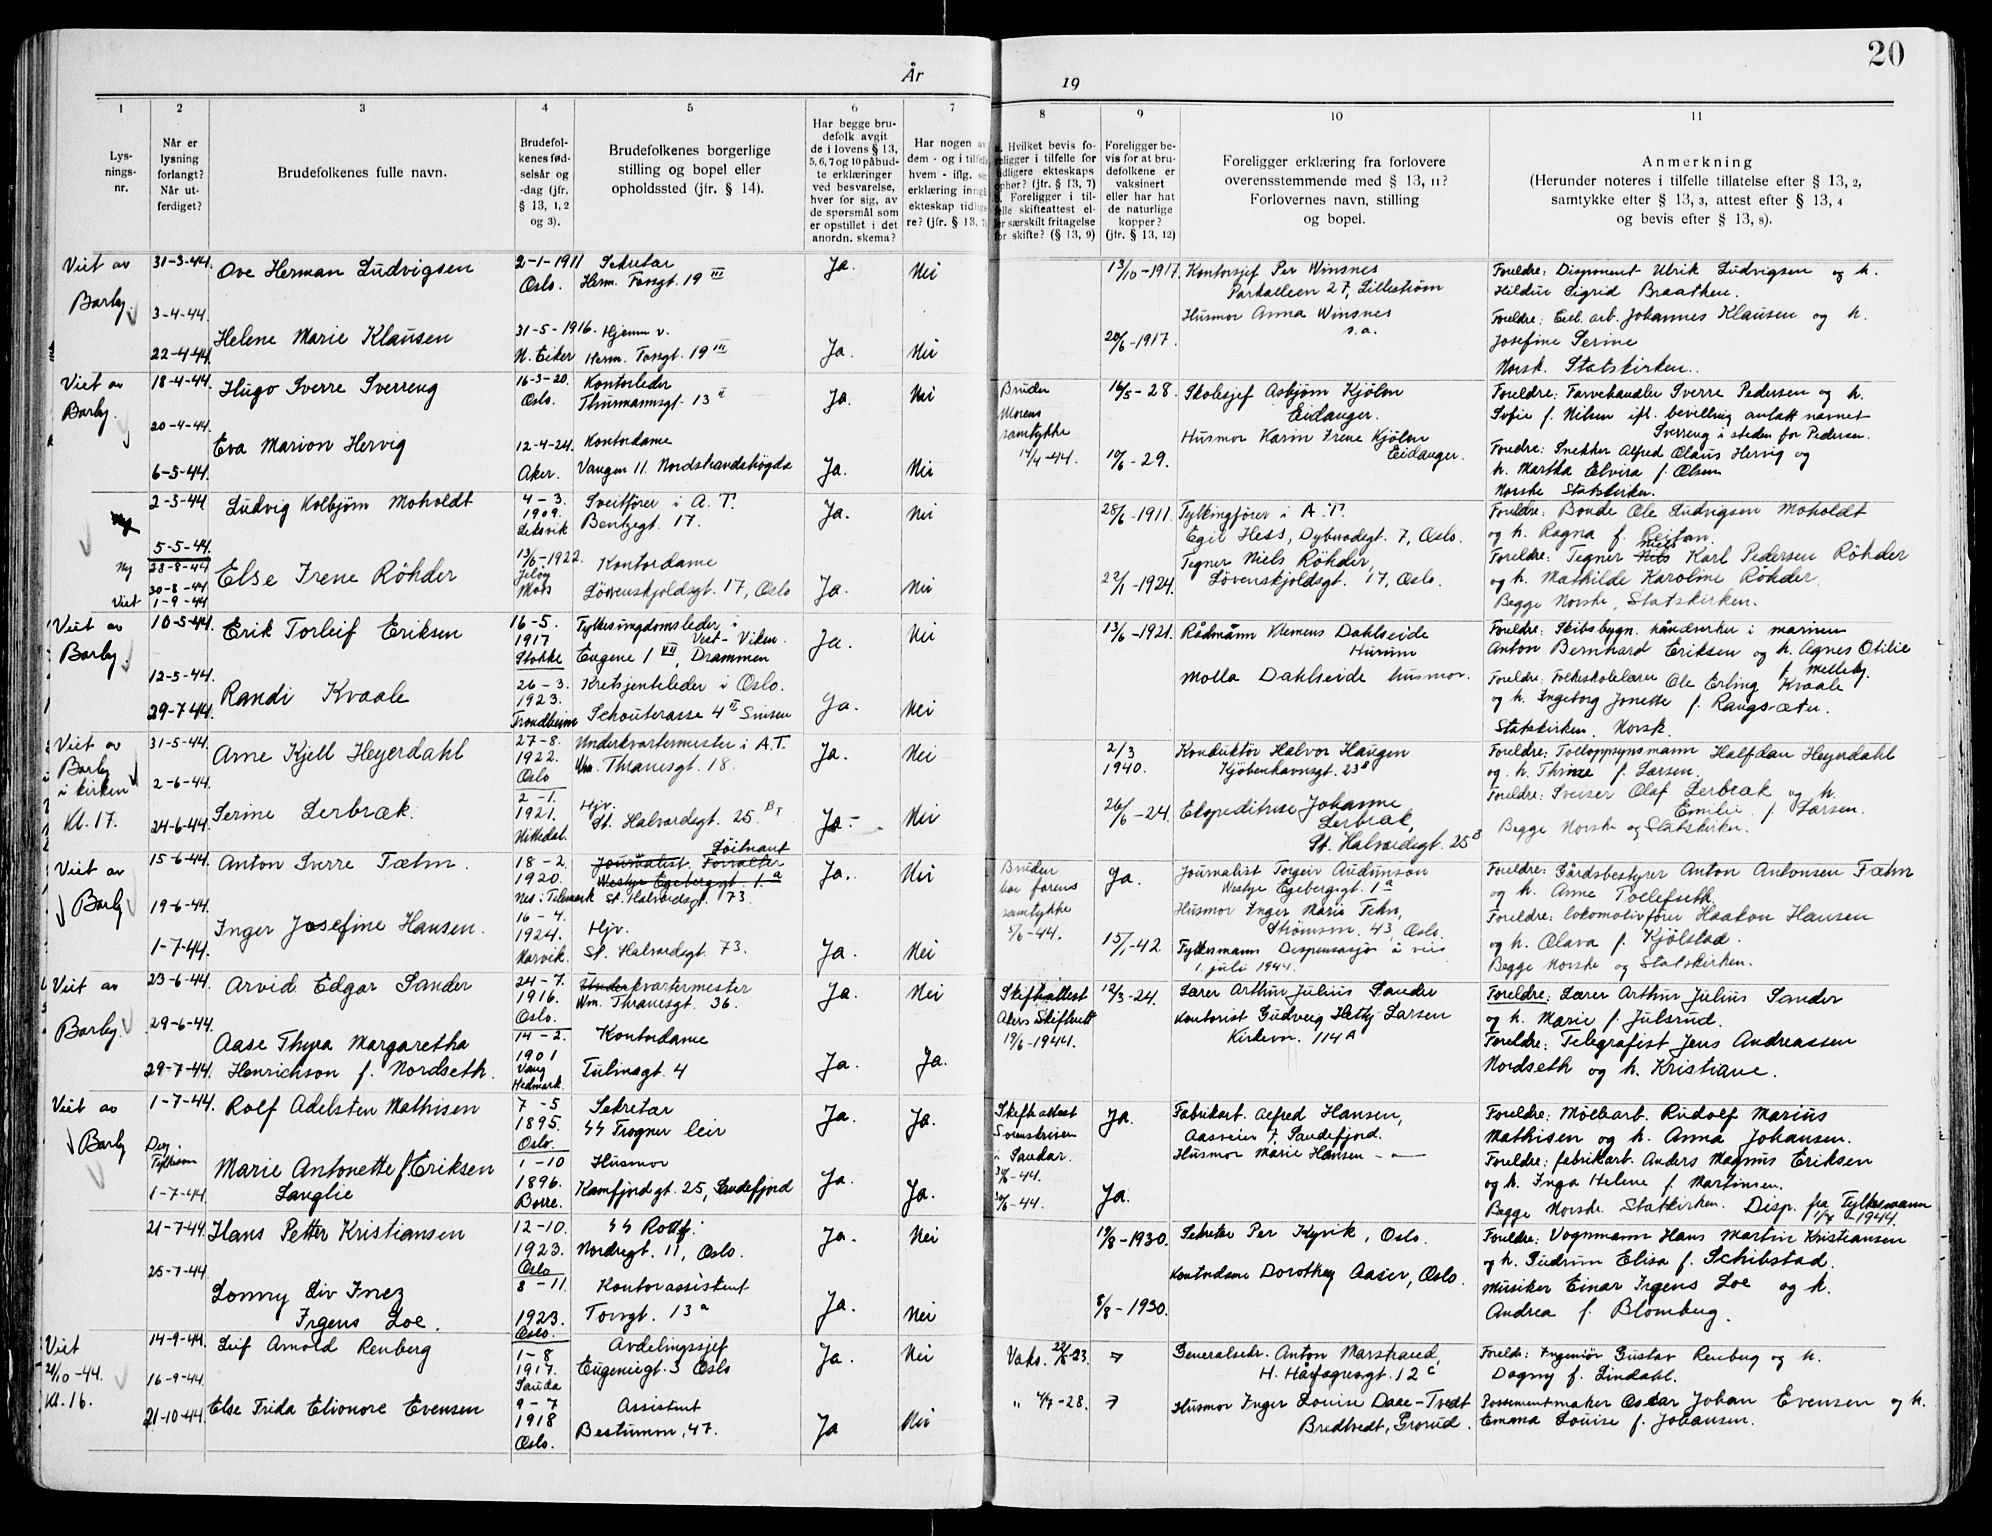 20
År
19
1
2
3
4
5
6
7
8
9
10
11
Lys-
nings-
nr.
Når er
lysning
forlangt?
Når ut-
ferdiget?
Brudefolkenes fulle navn.
Brudefol-
kenes fød-
selsår og
-dag (jfr.
§ 13, 1, 2
og 3).
Brudefolkenes borgerlige
stilling og bopel eller
opholdssted (jfr. § 14).
Har begge bru-
defolk avgit
de i lovens § 13,
5, 6, 7 og 10 påbud-
te erklæringer
ved besvarelse,
hver for sig, av
de spørsmål som
er opstillet i det
anordn. skema?
Har nogen av
dem - og i tilfelle
hvem - iflg. se
erklæring inngå
ekteskap tidlige
re? (jfr. § 13, 7)
a. Hvilket bevis fo-
religger i tilfelle for
tidligere ekteskaps
ophør? (jfr. § 13, 7)
b. Foreligger i til-
felle skifteattest el-
ler særskilt fritagelse
for skifte? (§ 13, 9)
Foreligger be-
vis for at bru-
defolkene er
vaksinert
eller har hat
de naturlige
kopper?
(jfr. § 13, 12)
Foreligger erklæring fra forlovere
overensstemmende med § 13, 11?
Forlovernes navn, stilling
og bopel.
Anmerkning
(Herunder noteres i tilfelle tillatelse efter § 13, 2,
samtykke efter § 13, 3, attest efter § 13, 4
og bevis efter § 13, 8).
Viet av
Barby
31-3-44.
3-4-44.
22-4-44.
Ove Herman Ludvigsen
2-1-1911
Oslo.
Sekretær
Herm. Fossgt. 19 III
Ja.
Nei
13/10-1917.
Kontorsjef Per Winsnes
Parkalleen 27, Lillestrøm
Husmor Anna Winsnes
s.a.
Foreldre: Disponent Ulrik Ludvigsen og h.
Hildur Sigrid Braathen.
Helene Marie Klausen
31-5-1916.
N. Eiker
Hjemm v.
Herm. Fossgt. 19 III
Ja.
Nei
20/6-1917.
Foreldre: arb. Johannes Klausen og h.
Josefine Serine
Norsk. Statskirken.
Viet av
Barby.
18-4-44.
20-4-44.
6-5-44.
Hugo Sverre Sverreng
16-3-20.
Oslo.
Kontorleder
Thurmannsgt. 13 II
Ja.
Nei
Bruden
Morens
samtykke
14/4-44.
16/5-28.
Skolesjef Asbjørn Kjölen
Eidanger.
Husmor Karin Irene Kjölen
Eidanger.
Foreldre: Farvehandler Sverre Pedersen og h.
Sofie f. Nilsen ifl. bevilling antatt navnet
Sverreng i steden for Pedersen.
Eva Marion Hervig
12-4-24.
Aker.
Kontordame
Vangen 11. Nordstrandshøgda
Ja.
Nei
10/6-29.
Foreldre: Snekker Alfred Olaus Hervig og
h. Martha Elvira f. Olsen
Norske Statskirken.
Ny
Viet
2-3-44
5-5-44.
28-8-44
30-8-44
1-9-44
Ludvig Kolbjørn Moholdt
4-3.
1909.
Leksvik
Sveitfører i A.T.
Bentzegt. 17.
Ja.
Nei
28/6-1911.
Fylkingfører i A.T.
Egil Hess, Dybwadsgt. 7, Oslo.
Tegner Niels Röhder,
Løvenskjoldsgt. 17, Oslo.
Foreldre: Bonde Ole Ludvigsen Moholdt
og h. Ragna f. Reitan.
Else Irene Röhder
13/6-1922.
Jeløy
Moss
Kontordame
Löwenskjoldsgt. 17, Oslo
Ja.
Nei
22/1-1924.
Foreldre: Tegner Niels Karl Pedersen Röhder
og h. Mathilde Karoline Röhder.
Begge Norske, Statskirken.
Viet av
Barby.
10-5-44.
12-5-44.
29-7-44.
Erik Torleif Eriksen
16-5.
1917
Stokke
Fylkesungdomsleder i
Vest-Viken.
Eugene 1 VII, Drammen
Ja.
Nei
13/6-1921.
Rådmann Klemens Dahlseide
Hurum
Molla Dahlseide husmor.
Foreldre: Skibsbygn. håndverker i marinen
Anton Bernhard Eriksen og h. Agnes Otilie
f. Melleby.
Randi Kvaale
26-3.
1923.
Trondheim
Kretsjenteleder i Oslo.
Schouterasse 4 II Sinsen
Ja.
Nei
Foreldre: Folkeskolelærer Ole Erling Kvaale
og h. Ingeborg Jonette f. Raugsæter.
Statskirken. Norsk.
Viet av
Barby
i kirken
Kl. 17.
31-5-44.
2-6-44.
24-6-44.
Arne Kjell Heyerdahl
27-8.
1922.
Oslo
Underkvartermester i A.T.
Wm. Thranesgt. 18.
Ja.
Nei
2/3
1940.
Konduktør Halvor Haugen
Kjöbenhavnsgt. 23 B
Ekspeditrise Johanne
Lerbrak,
St. Halvardsgt. 25 B
Foreldre: Tolloppsynsmann Halfdan Heyerdahl
og. h. Thrine f. Larsen.
Serine Lerbrak.
2-1.
1921.
Nittedal.
Hjv.
St. Halvardsgt. 25. B I
Ja.
Nei
26/6-24.
Foreldre: Sveiser Olaf Lerbrak og h.
Emilie f. Larsen.
Begge Norske og Statskirken.
Viet av
Barby
15-6-44.
19-6-44.
1-7-44.
Anton Sverre Fæhn.
18-2
1920.
Nes i Telemark
Löitnant
Journalist. Forvalter
Westye Egebergsgt. 1.a
St. Halvardsgt. 73.
Ja.
Nei
Bruden
har farens
samtykke
5/6-44.
Ja.
Journalist Torgeir Audunson
Westye Egebergsgt. 1 a
Husmor Inger Marie Fehn,
Strömsvn. 43, Oslo.
Fylkesmanns Dispensasjon å vies
1. juli 1944.
Foreldre: Gårdsbestyrer Anton Antonsen Fæhn
og h. Anne Tollefseth
Inger Josefine Hansen.
16-4.
1924.
Narvik.
Hjv.
St. Halvardsgt. 73.
Ja.
Nei
15/1-42.
Foreldre: lokomotivfører Haakon Hansen
og h. Olava f. Kjölstad.
Begge Norske og Statskirken.
Viet av
Barby.
23-6-44.
29-6-44.
29-7-44.
Arvid Edgar Sander
24-7.
1916.
Oslo.
Underkvartermester
Wm. Thranesgt. 36.
Ja.
Nei
Skifteattest
Akers Skifterett
19/6-1944.
12/3-24.
Lærer Arthur Julius Sander
Kontorist Gudveig Hetty Larsen
Kirkevn. 114 A
Foreldre: Lærer Arthur Julius Sander
og h. Marie f. Julsrud.
Aase Thyra Margaretha
Henrichson f. Nordseth.
14-2.
1901
Vang
Hedmark.
Kontordame
Tulinsgt. 4
Ja.
Ja.
Foreldre: Telegrafist Jens Andreassen
Nordseth og h. Kristiane.
Viet av
Barby
1-7-44.
Disp.
Fylkesm
1-7-44.
Rolf Adelsten Mathisen
7-5
1895.
Oslo.
Sekretær
SS Trogner leir
Ja.
Ja.
Skifteattest
Sorenskriveren
i Sandar.
30/6-44.
Ja.
Fabrikarb. Alfred Hansen,
Aasveien 7, Sandefjord.
Husmor Marie Hansen - " -
Foreldre: Møllearb. Rudolf Marius
Mathisen og h. Anna Johansen.
Marie Antonette f Eriksen
Langlie
1-10
1896.
Borre.
Husmor
Kamfjord gt. 25, Sandefjord
Ja.
Ja.
30/6-44.
Ja.
Foreldre: fabrikarb. Anders Magnus Eriksen
og h. Inga Helene f. Martinsen.
Begge Norske. Statskirken. Disp. fra Fylkesmann
1/7-1944.
21-7-44.
25-7-44.
Hans Petter Kristiansen
12-10.
1923.
Oslo
SS Rottf.
Nordregt. 11, Oslo.
Ja.
Nei
19/8-1930.
Sekretær Per Kyvik, Oslo.
Kontordame Dorothey Aaser, Oslo.
Foreldre: Vognmann Hans Martin Kristiansen
og h. Gudrun Elisa f. Schibstad.
Lonny Liv Inez
Irgens Loe.
8-11
1923.
Oslo.
Kontorassistent
Torvgt. 13 a
Ja.
Nei
8/8-1930.
Musiker Einar Irgens Loe og h.
Andrea f. Blomberg.
Viet
21/10-44.
Kl. 16.
14-9-44.
16-9-44.
21-10-44.
Leif Arnold Renberg
1-8
1917.
Sauda
Avdelingssjef
Eugeniegt. 3 Oslo
Ja.
Nei
Vaks. 22/6-23.
Generalsekr. Anton Marstrand,
H. Hårfagresgt. 12 c
Foreldr: Ingeniør Gustav Renberg og h.
Dagny f. Lindahl.
Else Frida Elionore Evensen
9-7
1918
Oslo.
Assistent
Bestumvn, 47.
Ja
Nei
" 4/7-28.
Husmor Inger Louise Daae-Tvedt
Bredtvedt, Grorud.
Possementmaker Oscar Johan Evensen og h.
Emma Louise f. Johansen.